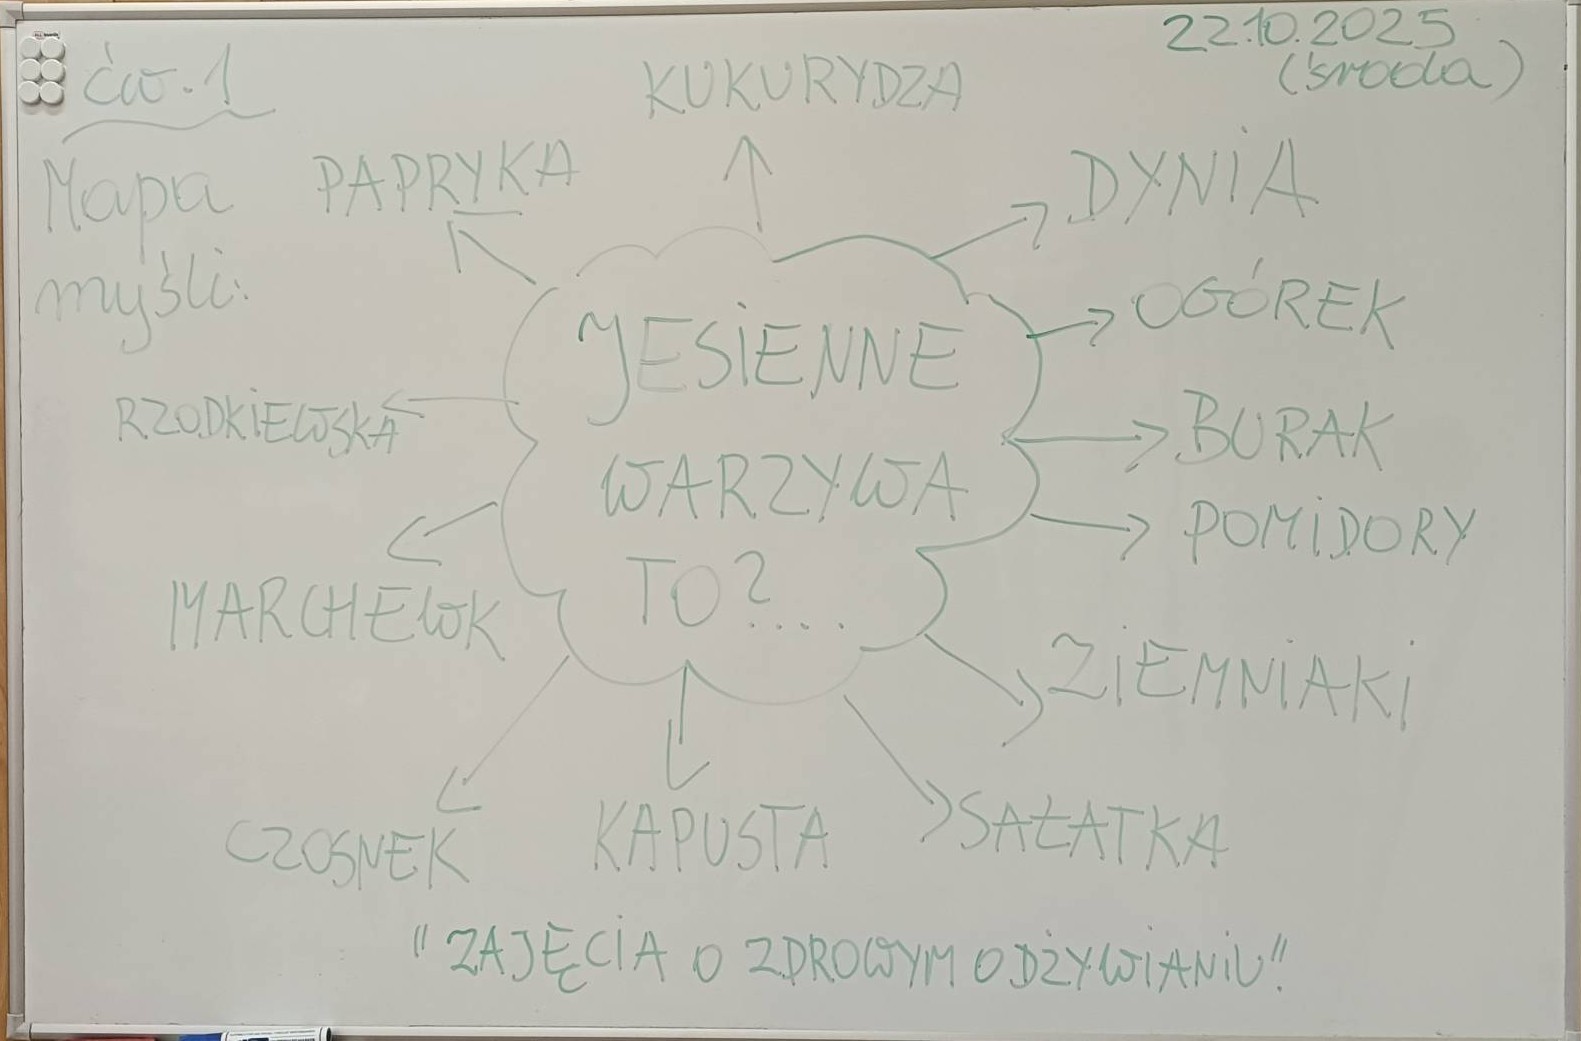 22.10.2025
(środa)
ćw. 1
Mapa
myśli:
KUKURYDZA
PAPRYKA
DYNIA
OGÓREK
RZODKIEWSKA
BURAK
POMIDORY
MARCHEWK
ZIEMNIAKI
CZOSNEK
KAPUSTA
SAŁATKA
JESIENNE
WARZYWA
TO?....
"ZAJĘCIA O ZDROWYM ODŻYWIANIU"